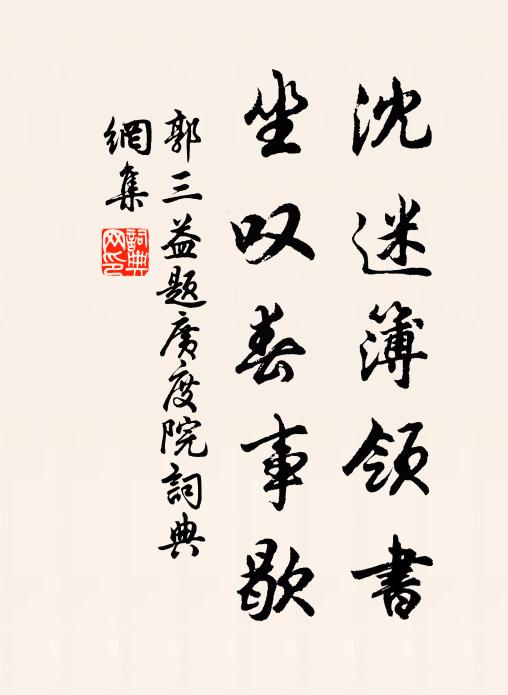 沈迷簿領書
坐叹春事歇
郭三益題廣度院詞典
網集
詞典
网印